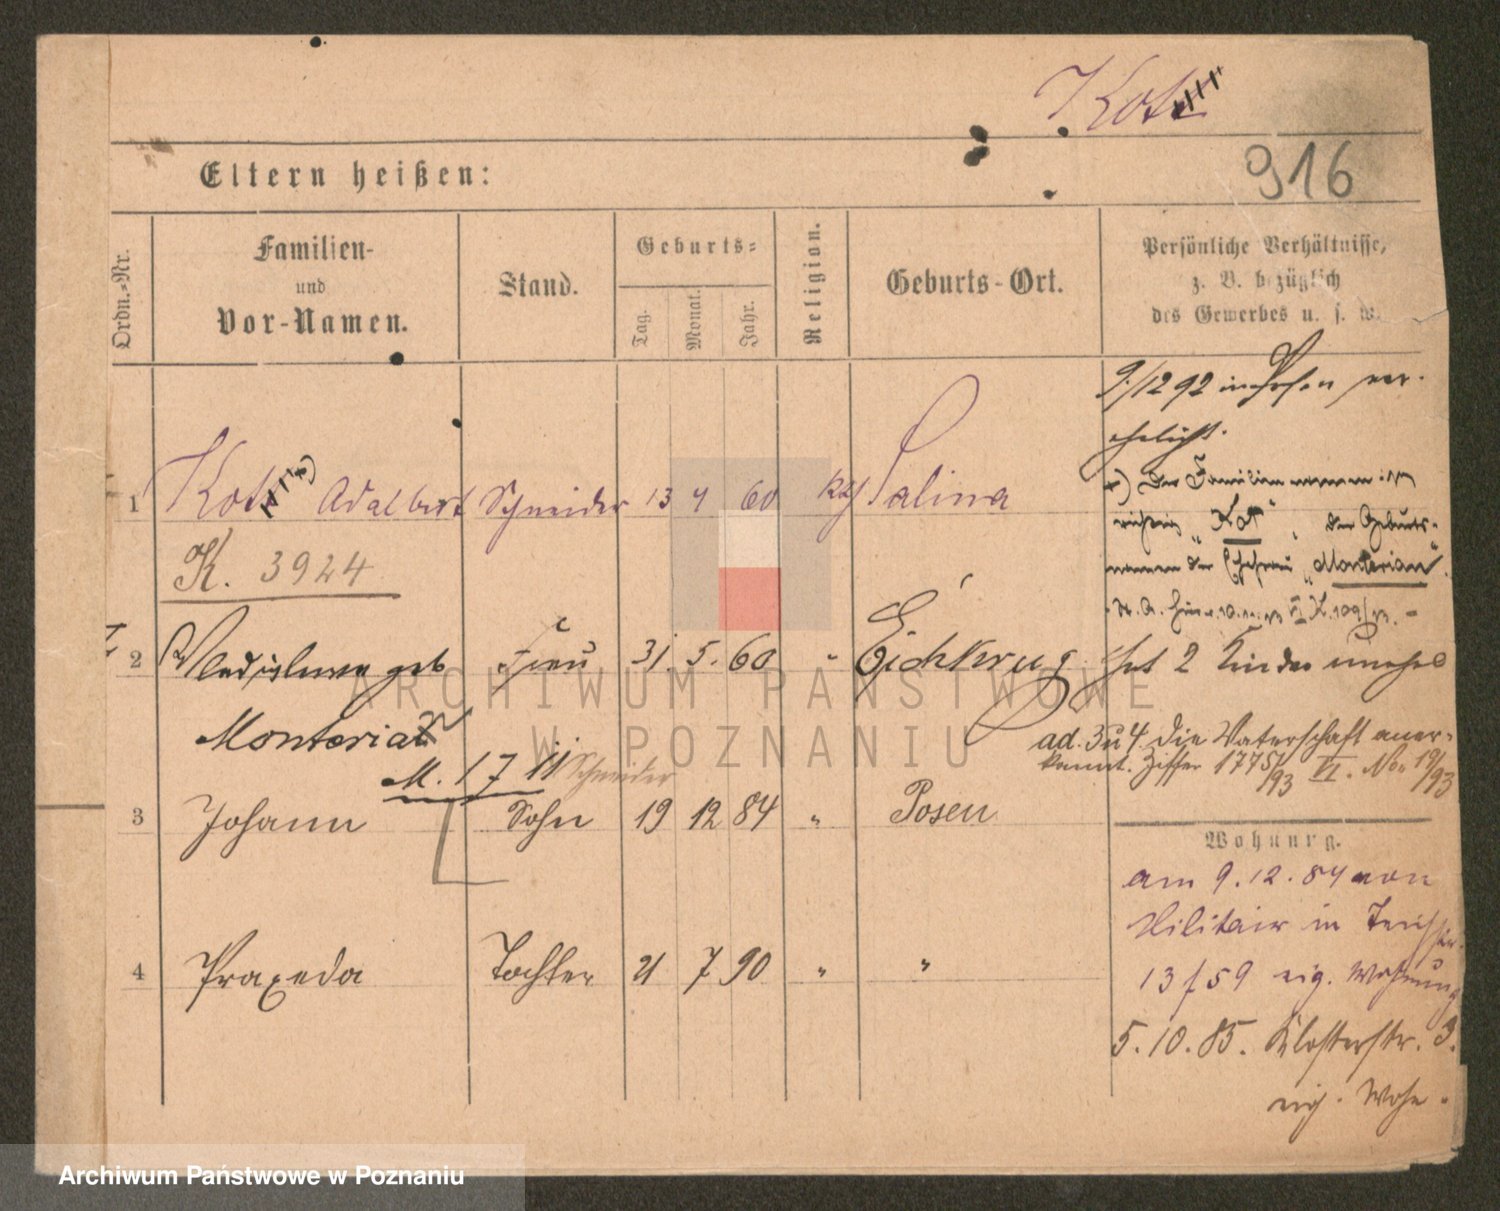 Kot
916
Eltern heißen:
Ordn.-Nr.
Familien-
und
Vor-Namen.
Stand.
Geburts-
Tag.
Monat.
Jahr.
Religion.
Geburts-Ort.
Persönliche Verhältnisse,
z. B. bezüglich
des Gewerbes u. s. w.
9./12 92 in Posen ver-
ehelicht.
1 Kot Adalbert Schneider 13 4 60 kth Salina
+) Der Familiennamen ist
richtig "Kot", der Geburts-
namen der Ehefrau "Monterian".
K. 3924
2 Wladislawa geb Frau 31. 5. 60 " Eichkrug hat 2 Kinder unehel
Monteria
ad. 3 u 4. die Vaterschaft aner-
kannt. Ziffer 1775/93 VI. No 19/93
M. 17 11 Schneider
3 Johann Sohn 19 12 84 " Posen
Wohnung.
am 9.12.84 von
Militair in
13/59 eig. Wohnung
4 Praxeda Tochter 21 7 90 " "
5.10.85. Klosterstr. 3.
eig. Wohn.
ARCHIWUM PAŃSTWOWE
W POZNANIU
Archiwum Państwowe w Poznaniu